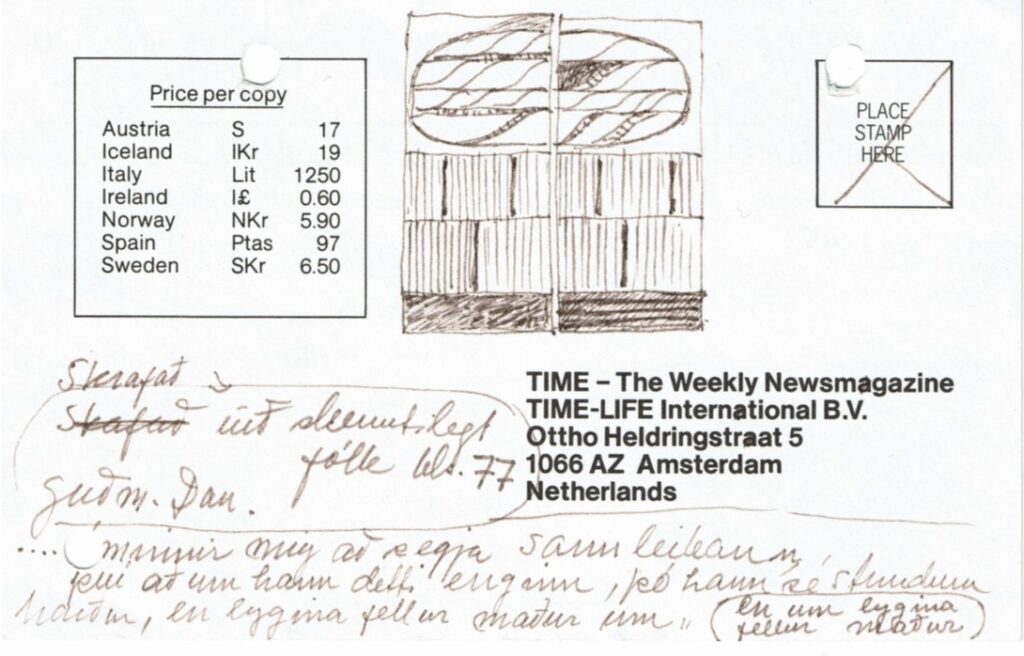 Price per copy
Austria S 17
Iceland IKr 19
Italy Lit 1250
Ireland I£ 0.60
Norway NKr 5.90
Spain Ptas 97
Sweden SKr 6.50
PLACE
STAMP
HERE
TIME – The Weekly Newsmagazine
TIME-LIFE International B.V.
Ottho Heldringstraat 5
1066 AZ Amsterdam
Netherlands
Skrafað
Skafað við skemmtilegt
fólk bls. 77
Guðm. Dan.
.... minnir mig að segja sannleikann,
því að um hann detti enginn, þó hann sé stundum
en lygina fellur maður um„
(en um lygina
fellur maður)